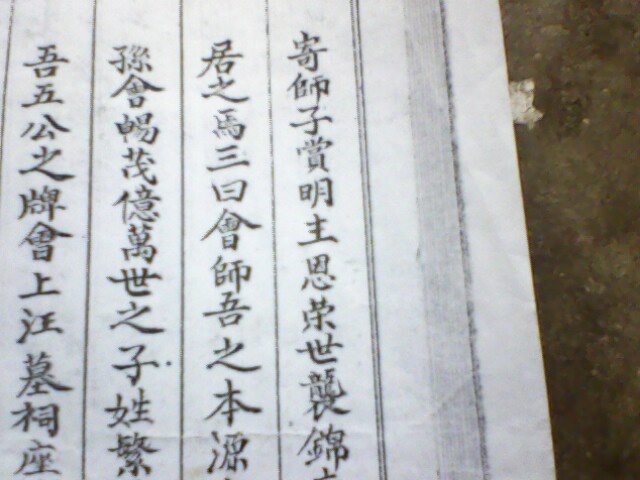 寄師子賞明主恩荣世襲錦
居之焉三曰會師吾之本源
孫會暢茂億萬世之子姓繁
吾五公之牌會上汪墓祠座